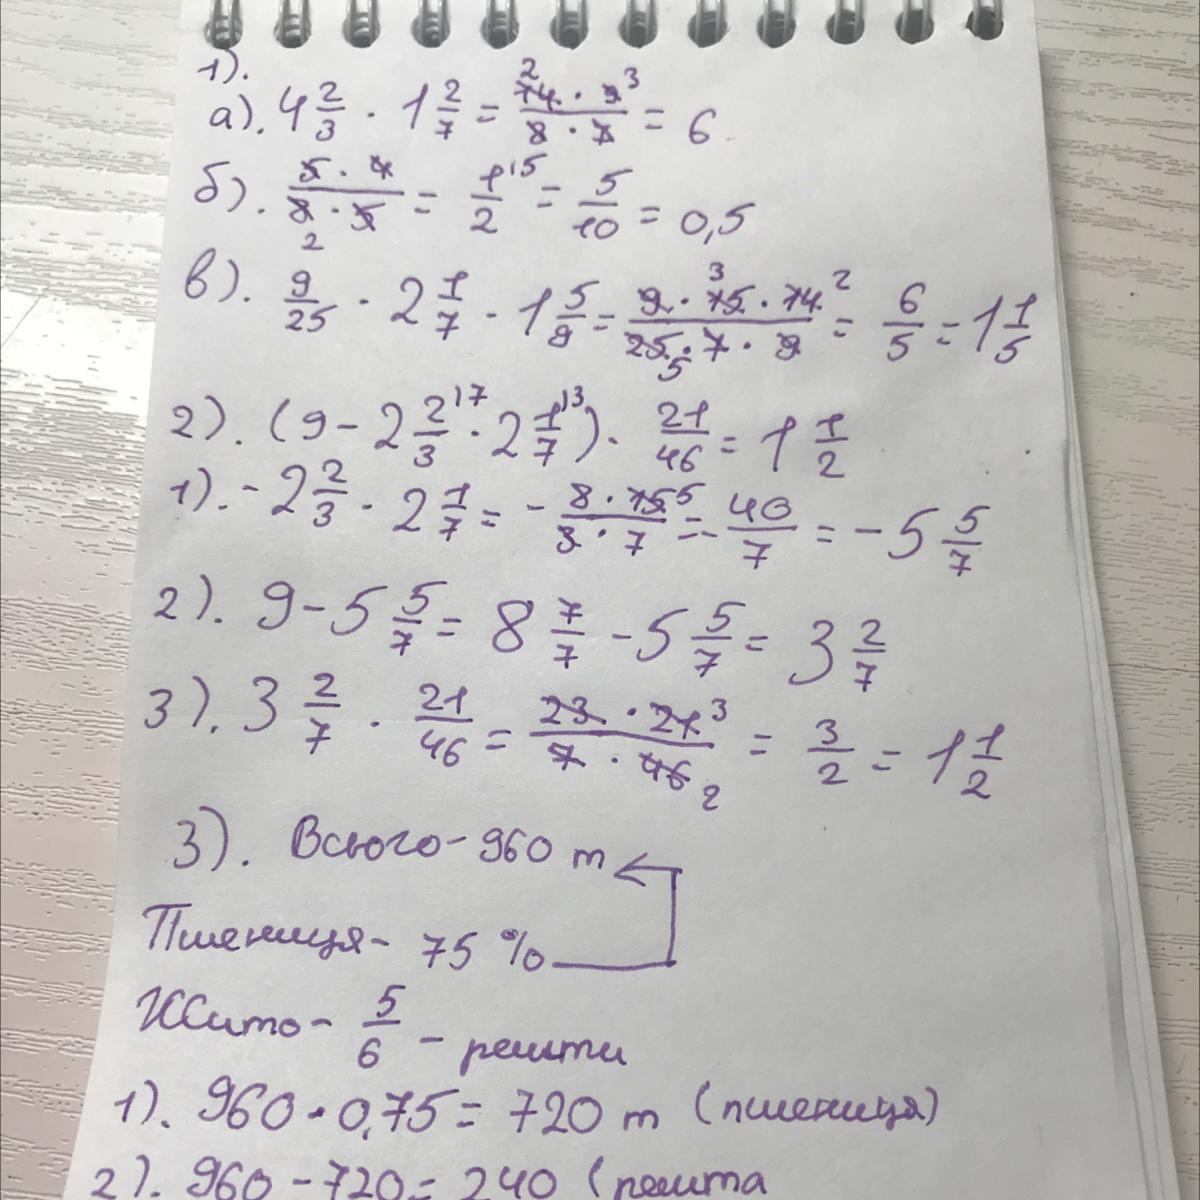 1).
а). 4 2/3 · 1 2/7 = 14 2 · 9 3 / 8 · 7 = 6
б). 5 · 4 / 8 2 · 5 = 1/2 ^(5 = 5/10 = 0,5
в). 9/25 · 2 1/7 · 1 5/9 = 9 · 15 3 · 14 2 / 25 5 · 7 · 9 = 6/5 = 1 1/5
2). (9 - 2 2/3 ^(7 · 2 1/7 ^(3) · 21/46 = 1 1/2
1). - 2 2/3 · 2 1/7 = - 8 · 15 5 / 3 · 7 = - 40/7 = - 5 5/7
2). 9 - 5 5/7 = 8 7/7 - 5 5/7 = 3 2/7
3). 3 2/7 · 21/46 = 23 · 21 3 / 7 · 46 2 = 3/2 = 1 1/2
3). Всього - 960 т
Пшениця - 75 %
Жито - 5/6 - решти
1). 960 · 0,75 = 720 т (пшениця)
2). 960 - 720 = 240 (решта